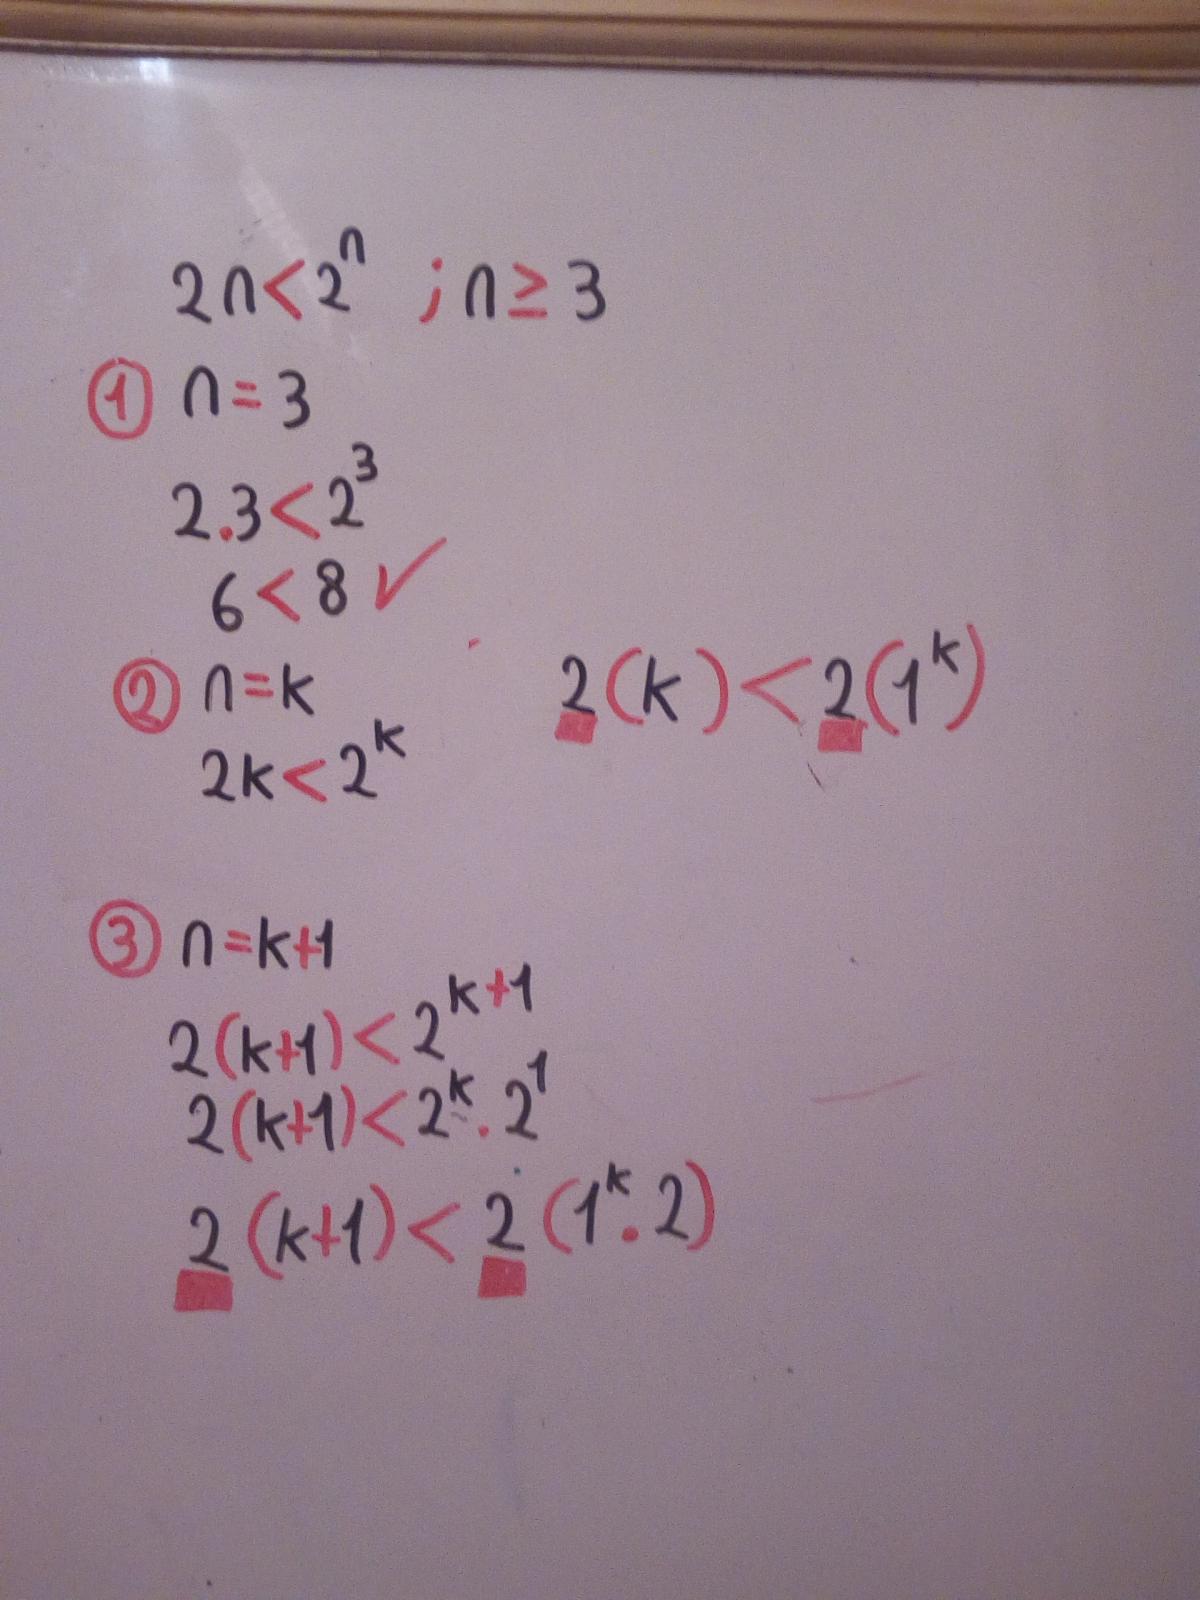 2n<2ⁿ ; n≥3
① n=3
2.3<2³
6<8 ✓
② n=k
2k<2ᵏ
2(k)<2(1ᵏ)
③ n=k+1
2(k+1)<2ᵏ⁺¹
2(k+1)<2ᵏ.2¹
2(k+1)<2(1ᵏ.2)